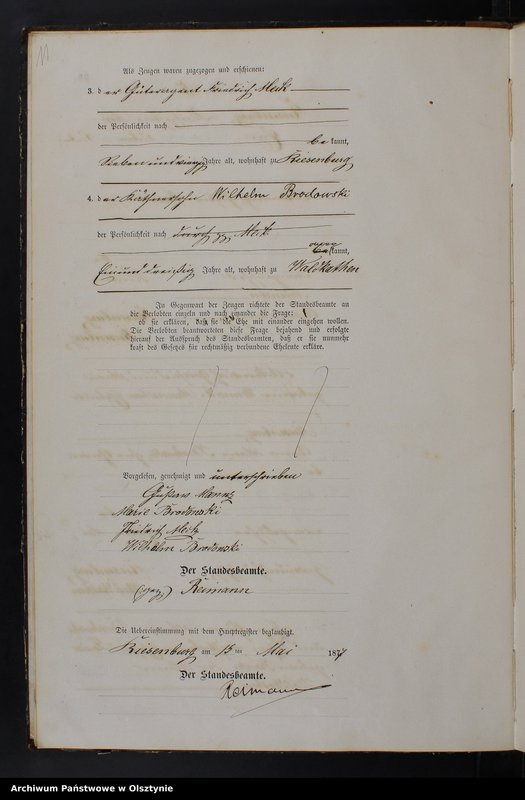 11
Als Zeugen waren zugezogen und erschienen:
3. der Güteragent Friedrich
der Persönlichkeit nach
be kannt,
Sieben und vierzig Jahre alt, wohnhaft zu Riesenburg
4. der Käthnersohn Wilhelm Brodowski
der Persönlichkeit nach durch pp
kannt,
Einunddreißig Jahre alt, wohnhaft zu Waldkathen
In Gegenwart der Zeugen richtete der Standesbeamte an
die Verlobten einzeln und nach einander die Frage:
ob sie erklären, daß sie die Ehe mit einander eingehen wollen.
Die Verlobten beantworteten diese Frage bejahend und erfolgte
hierauf der Ausspruch des Standesbeamten, daß er sie nunmehr
kraft des Gesetzes für rechtmäßig verbundene Eheleute erkläre.
Vorgelesen, genehmigt und unterschrieben
Gustav
Marie Brodowski
Friedrich
Wilhelm Brodowski
Der Standesbeamte.
(gez) Reimann
Die Uebereinstimmung mit dem Hauptregister beglaubigt.
Riesenburg am 15 ten Mai 1877
Der Standesbeamte.
Reimann
Archiwum Państwowe w Olsztynie